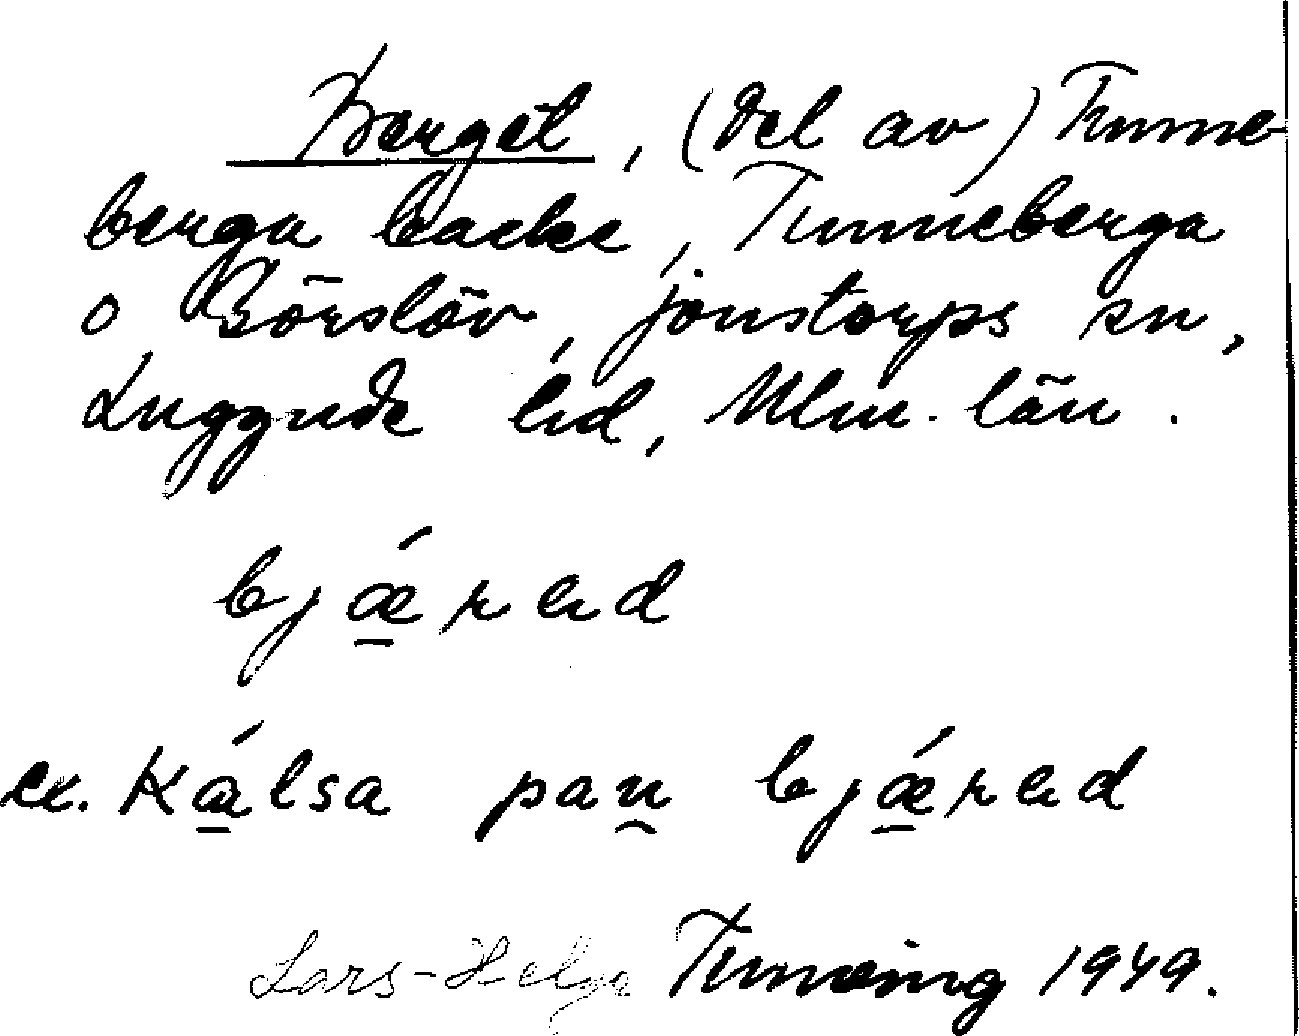 Berget, (del av) Tunne-
berga backe, Tunneberga
o Börslöv, Jonstorps sn,
Luggude hd, Mlm. län.
bjǽ̱rəd
ex. Ká̱lsa pau̯ bjǽ̱rəd
Lars-Helge Tunving 1949.